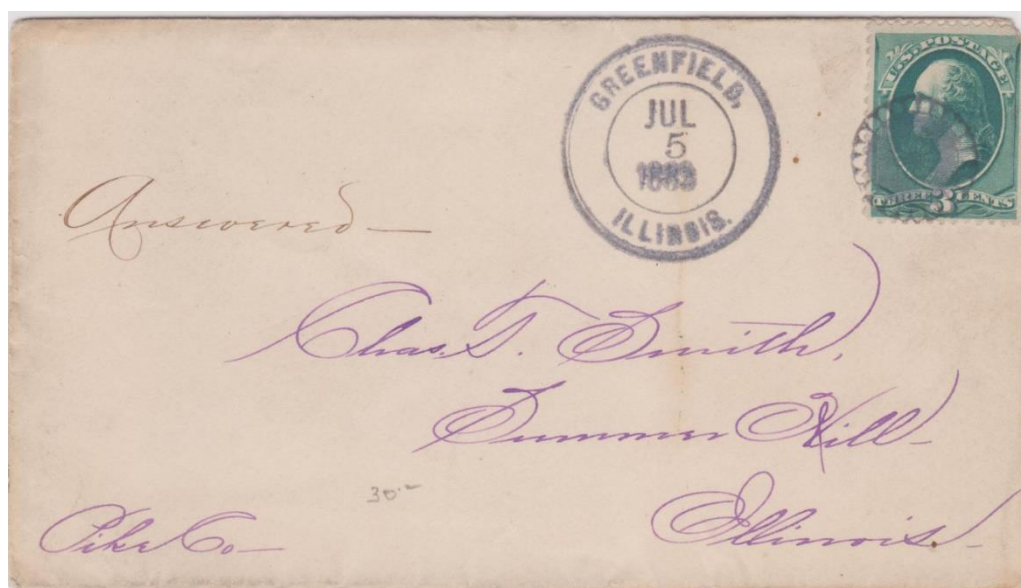 GREENFIELD,
JUL
5
1883
ILLINOIS.
U.S. POSTAGE
THREE 3 CENTS
Answered—
Chas. T. Smith,
Summer Hill—
Illinois—
Pike Co—
30.—